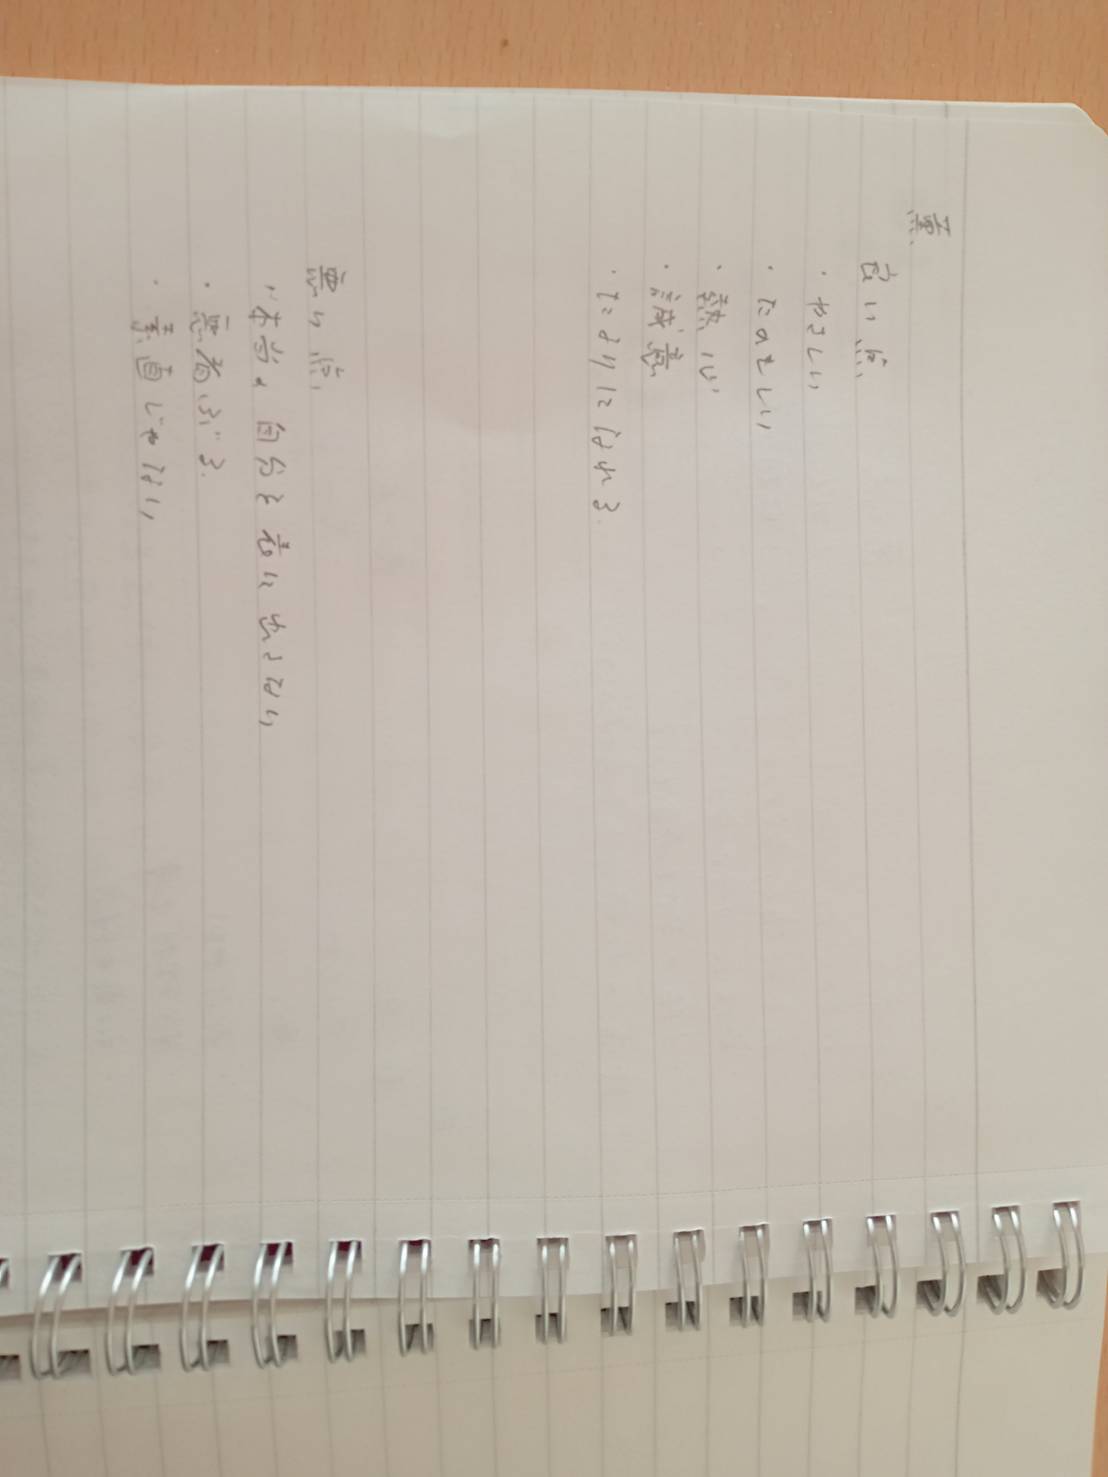 良い点
・やさしい
・たのもしい
・熱心
・誠意
・たよりになれる
悪い点
・本当の自分を表に出さない
・悪者ぶる。
・素直じゃない